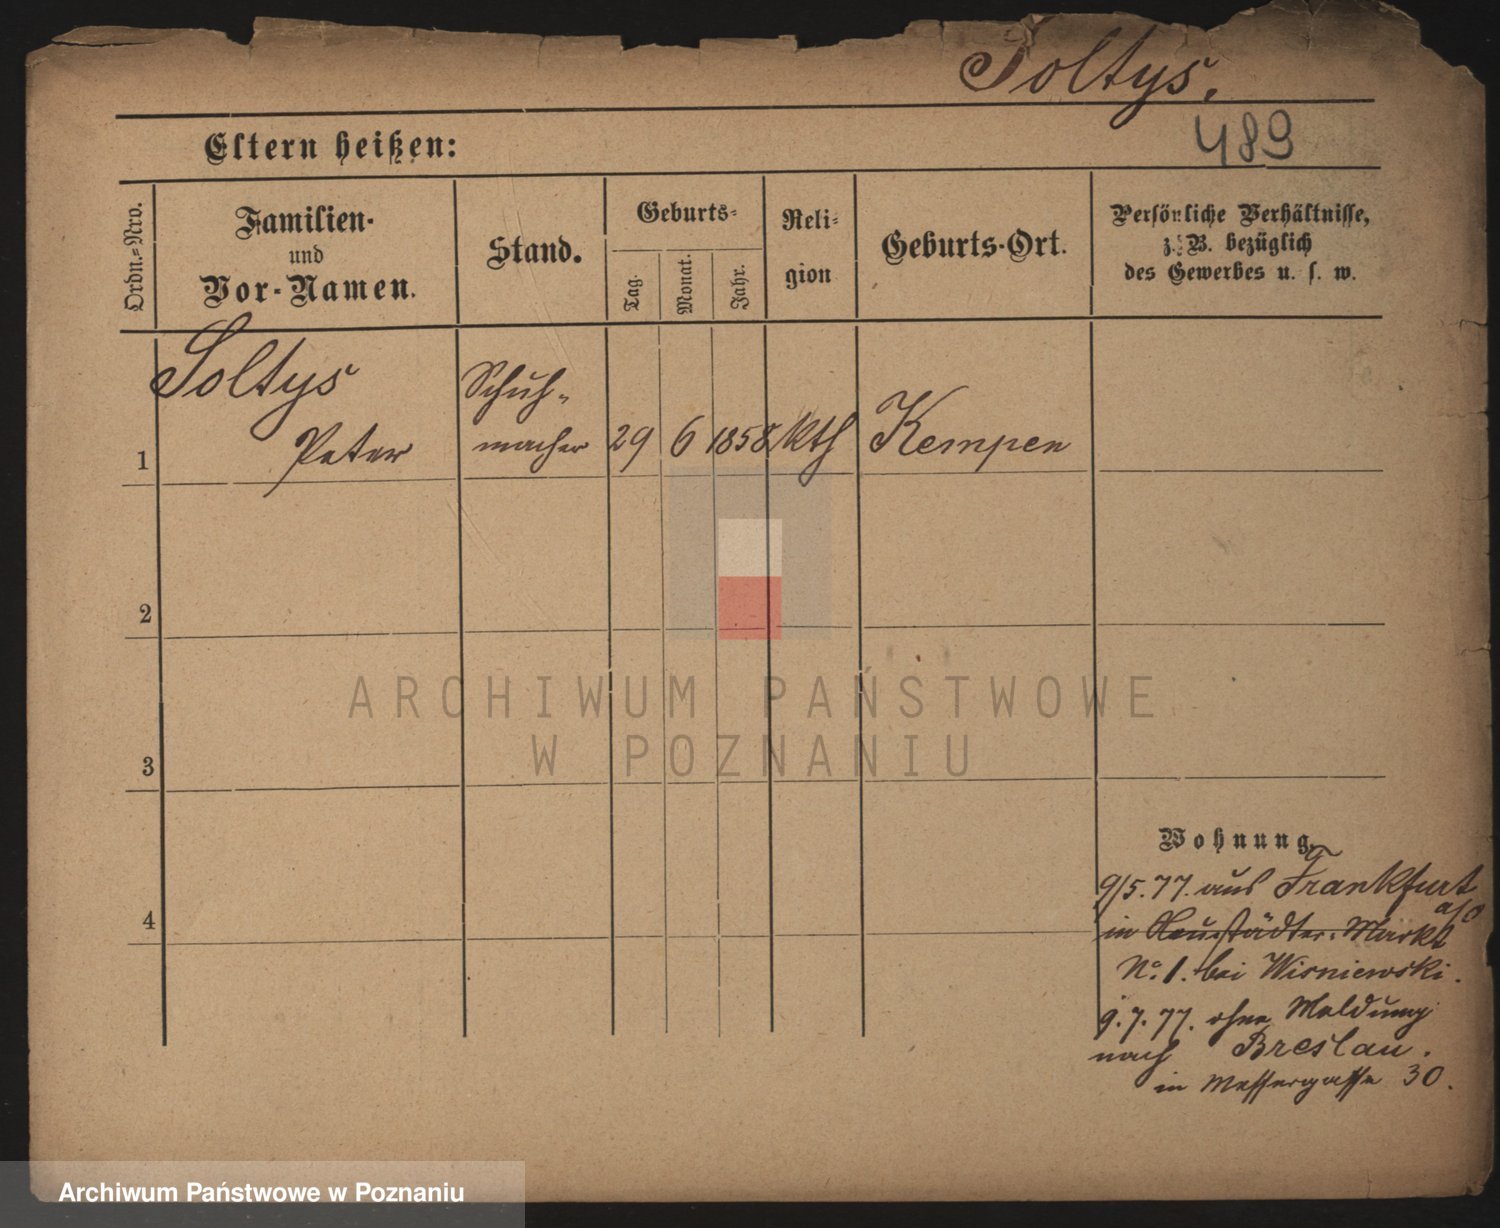 Soltys.
Eltern heißen:
489
Ordn.-Nro.
Familien-
und
Vor-Namen.
Stand.
Geburts-
Tag.
Monat.
Jahr.
Reli-
gion
Geburts-Ort.
Persönliche Verhältnisse,
z. B. bezüglich
des Gewerbes u. s. w.
Soltys
Peter
Schuh-
macher
1
29 6 1858 kth Kempen
2
3
4
ARCHIWUM PAŃSTWOWE
W POZNANIU
Wohnung
9/5.77. aus Frankfurt
a/O
in Neustädter-Markt
No. 1. bei Wisniewski.
9.7.77. ohne Meldung
nach Breslau.
in Messergasse 30.
Archiwum Państwowe w Poznaniu